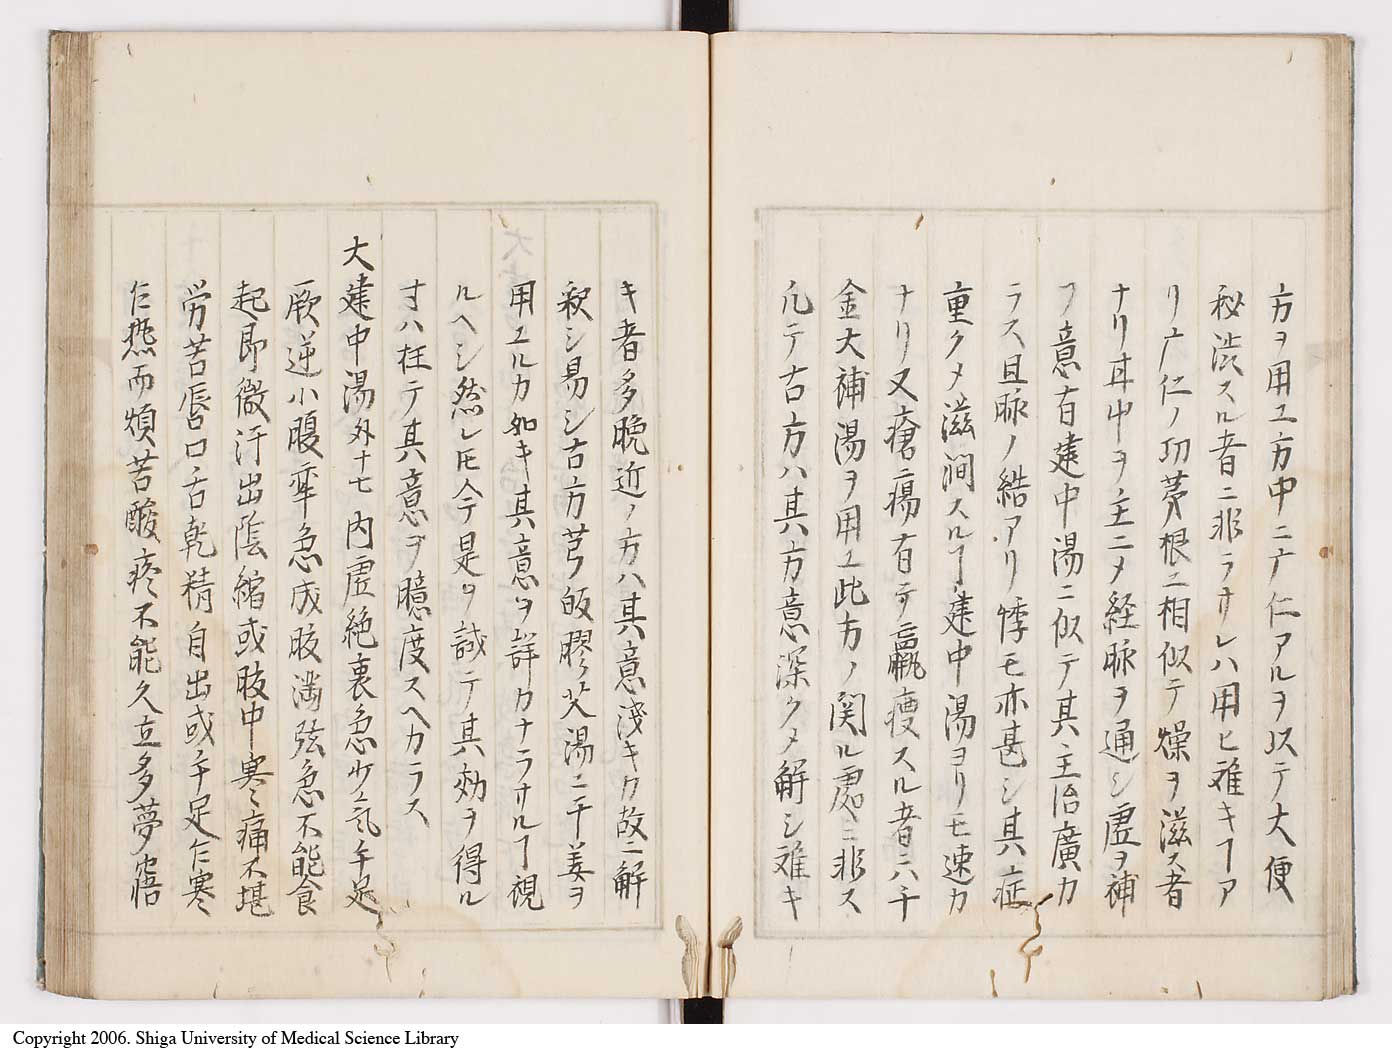 方ヲ用ユ方中ニ广仁アルヲ以テ大便
秘渋スル者ニ非ラサレハ用ヒ难キヿア
リ广仁ノ功茅根ニ相似テ燥ヲ滋ス者
ナリ其中ヲ主ニメ経脉ヲ通シ虚ヲ補
フ意有建中湯ニ似テ其主治廣カ
ラス且脉ノ結アリ悸モ亦甚シ其症
重クメ滋潤スルヿ建中湯ヨリモ速カ
ナリ又瘡瘍有テ羸痩スル者ニハ千
金大補湯ヲ用ユ此方ノ関ル處ニ非ス
凡テ古方ハ其方意深クメ解シ难キ
キ者多晩近ノ方ハ其意浅キカ故ニ解
釈シ易シ古方芎皈膠艾湯ニ干姜ヲ
用ユルカ如キ其意ヲ詳カナラサルヿ視
ルヘシ然レ𪜈今是ヲ試テ其効ヲ得ル
寸ハ枉テ其意ヲ臆度スヘカラス
大建中湯外十七内虚絶裏急少氣手足
厥逆小腹牽急成肢満弦急不能食
起即微汗出陰縮或肢中寒々痛不堪
労苦唇口舌乾精自出或手足乍寒
乍热而煩苦酸疼不能久立多夢寤
Copyright 2006. Shiga University of Medical Science Library